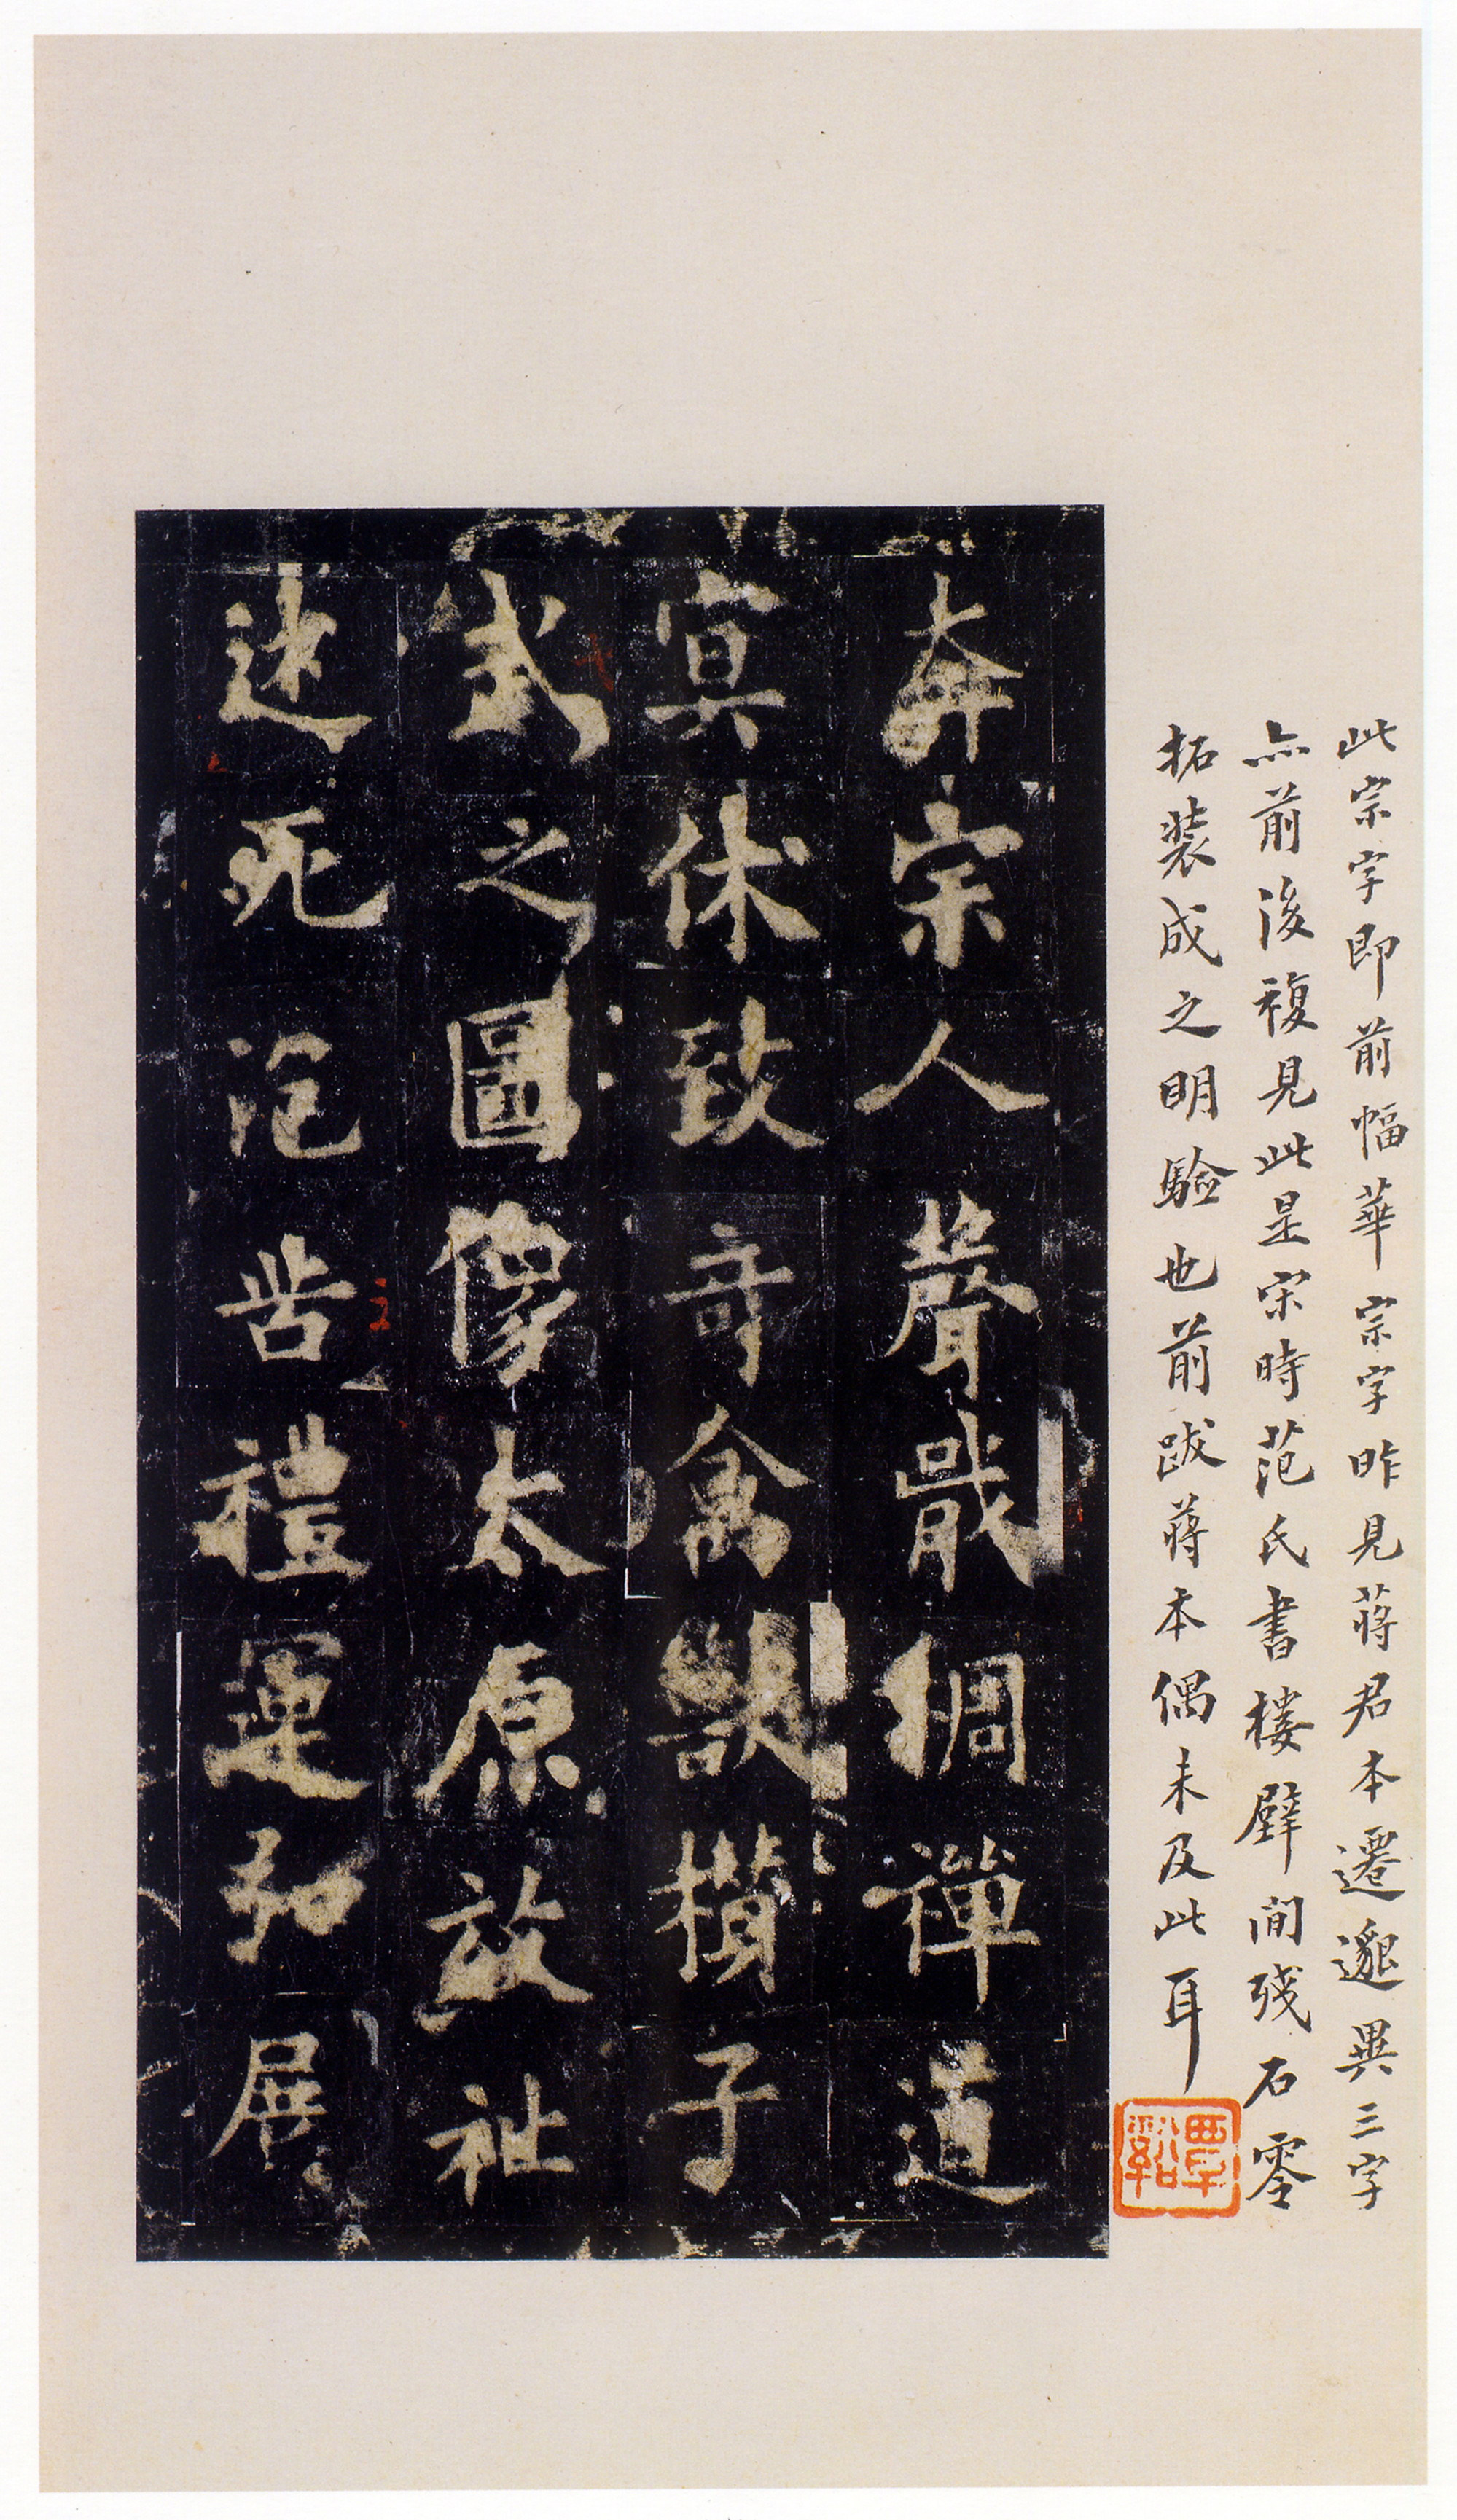 此宗字即前幅華宗字昨見蔣君本遷邈異三字
亦前後複見此是宋時范氏書樓壁間殘石零
拓裝成之明驗也前跋蔣本偶未及此耳
覃谿
奔宗人聲戢綢禪道
冥休致奇禽獸攢子
武之圖像太原放祉
迷死呰禮運弘展